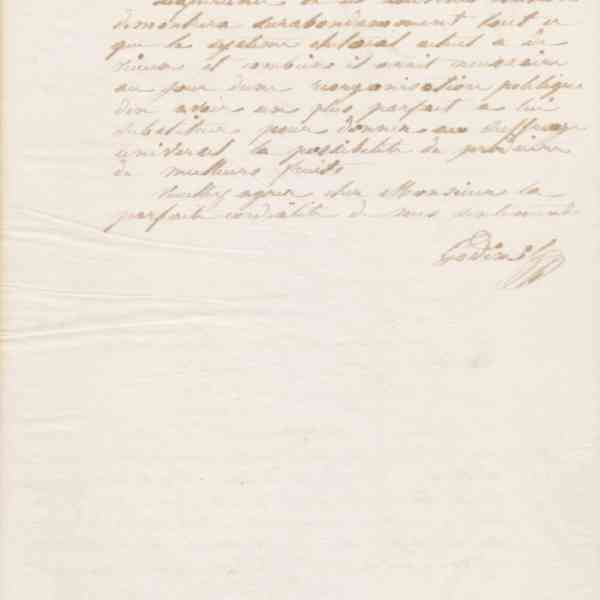 de
demontrera surabondamment tout ce
que le systeme electoral actuel a de
vicieux et combien il serait necessaire
au jour d'une reorganisation politique
d'en avoir un plus parfait a lui
substituer pour donner au suffrage
universel la possibilite de produire
de meilleurs fruits
Veuillez agreer cher Monsieur la
parfaite cordialite de mes sentiments
Godin